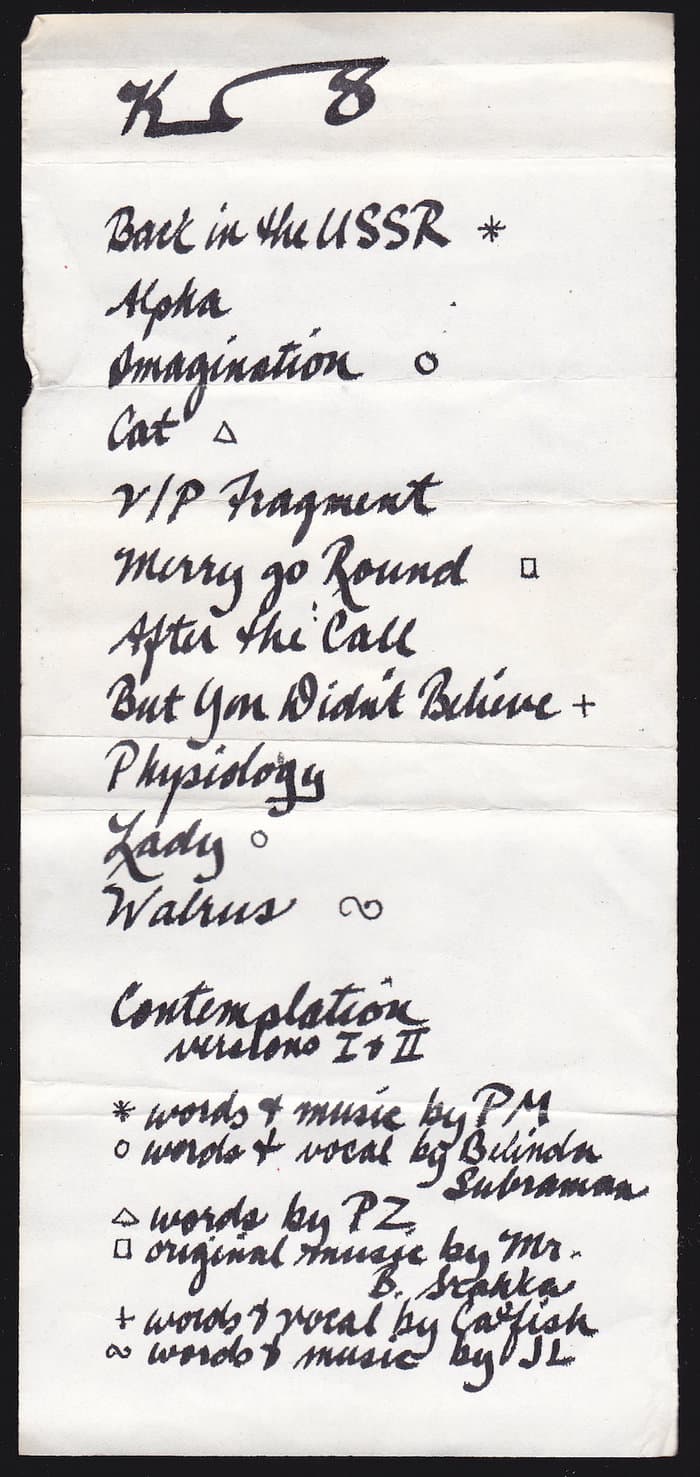 K 8
Back in the USSR *
Alpha
Imagination ○
Cat △
V/P Fragment
Merry go Round □
After the Call
But You Didn't Believe +
Physiology
Lady ○
Walrus ∾
Contemplation
versions I & II
* words & music by PM
○ words & vocal by Belinda
Subraman
△ words by PZ
□ original music by Mr.
B.
+ words & vocal by Catfish
∾ words & music by JL